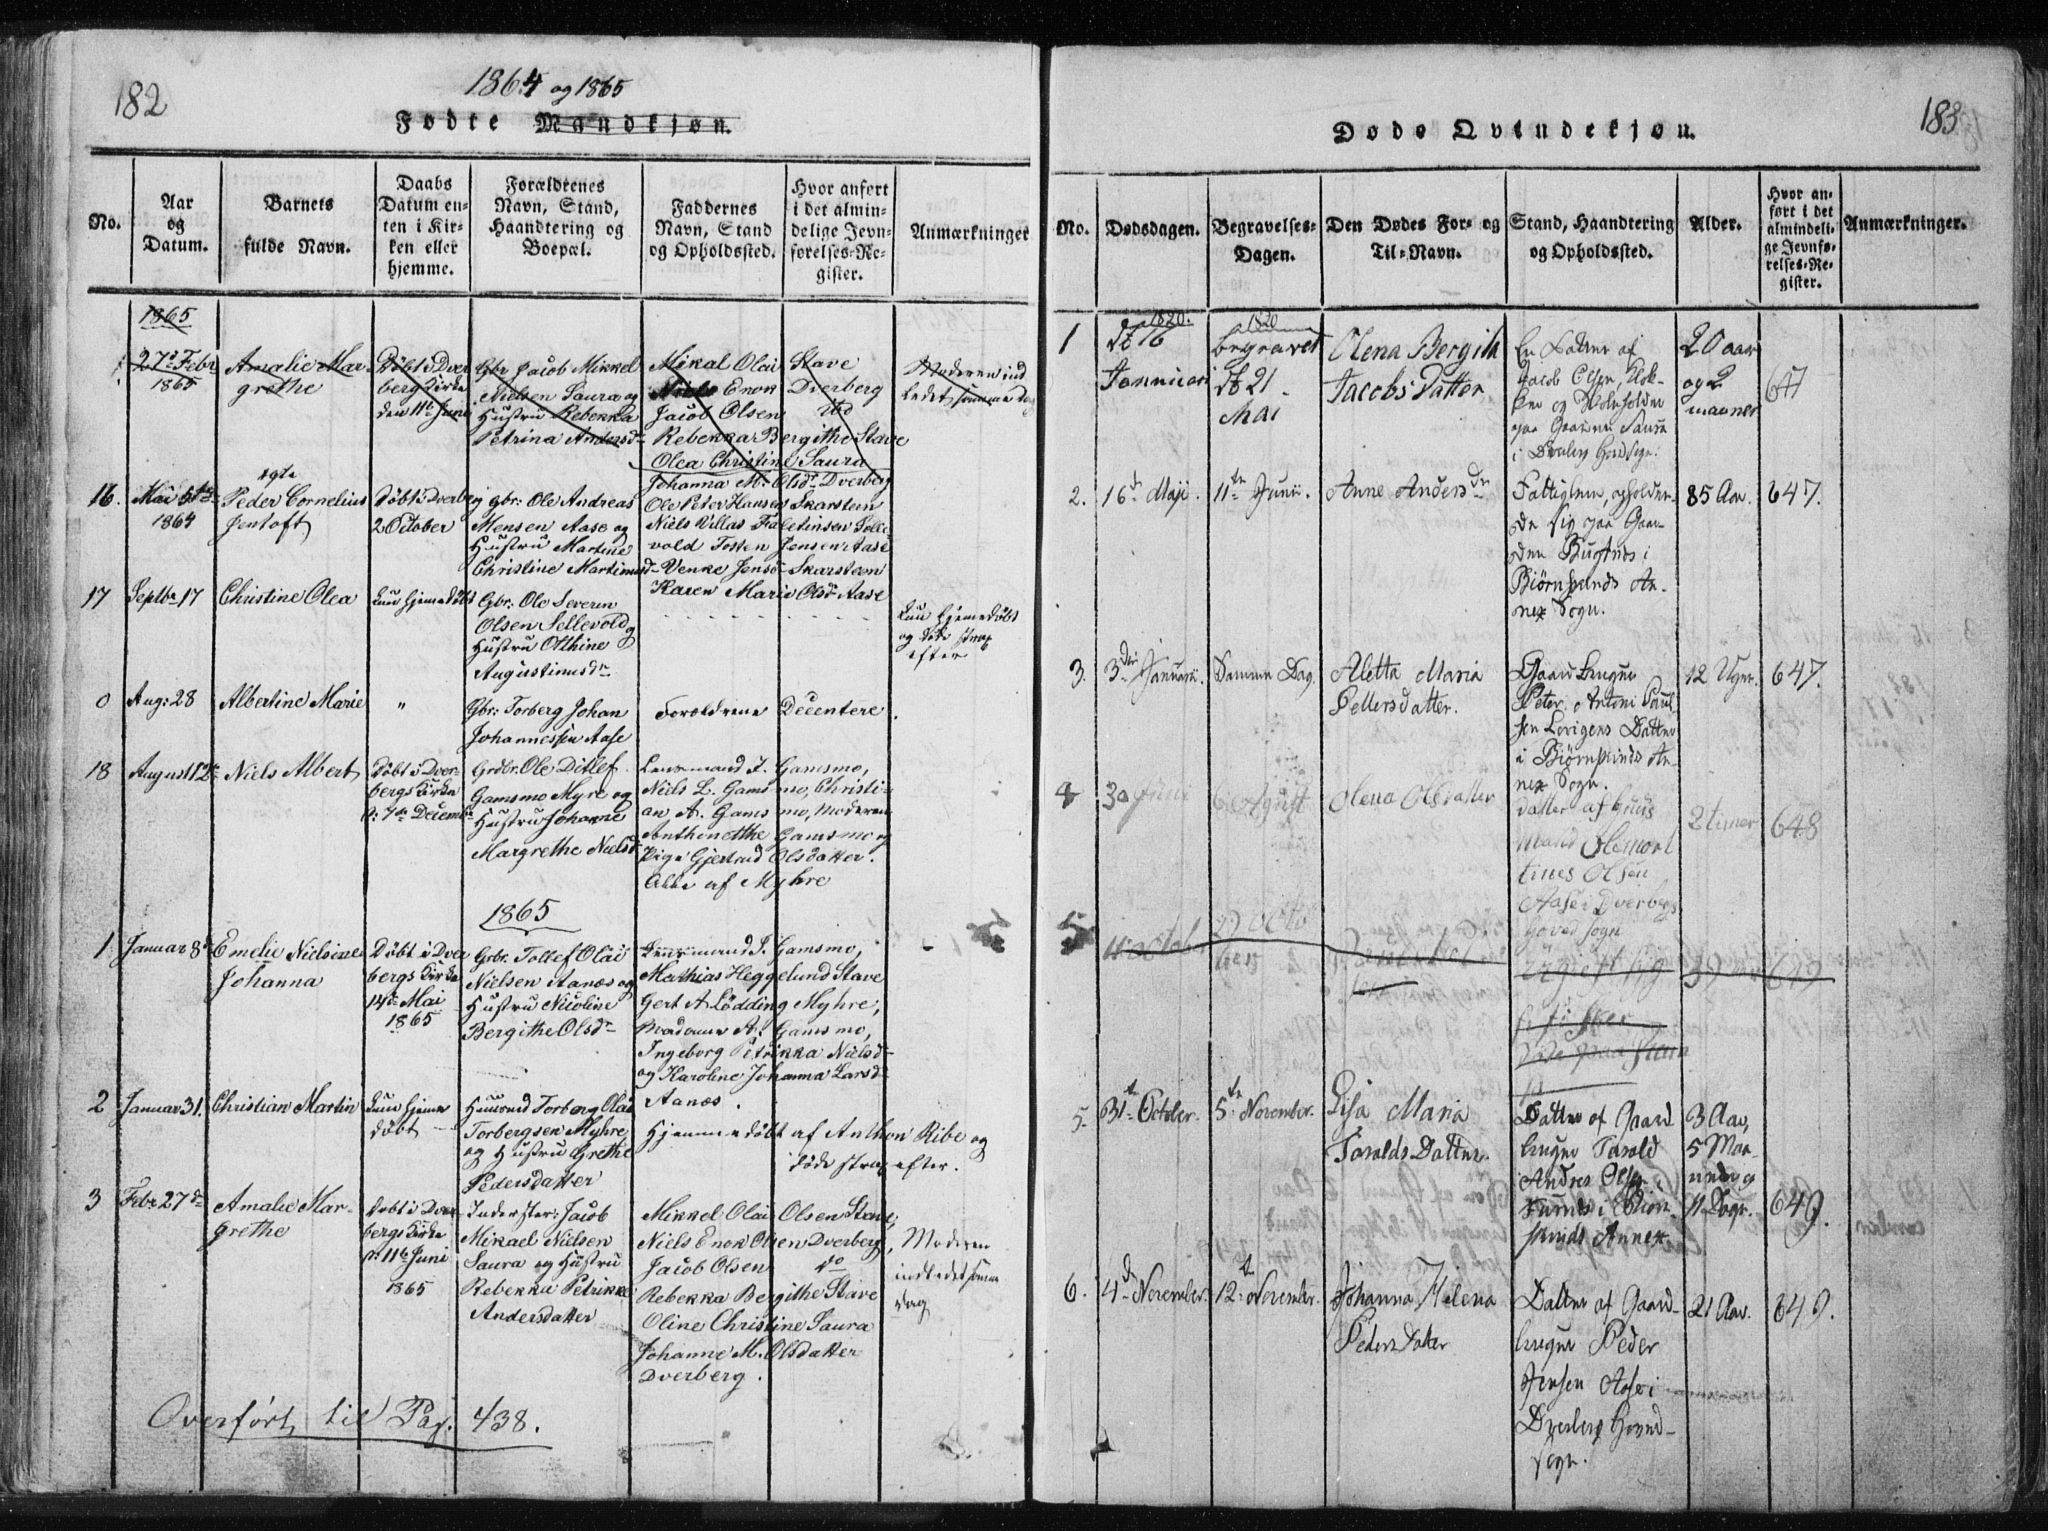 182
1864 og 1865
Fødte Mandkjøn.
No.
Aar
og
Datum.
Barnets
fulde Navn.
Daabs
Datum en-
ten i Kir-
ken eller
hjemme.
Forældrenes
Navn, Stand,
Haandtering og
Boepæl.
Faddernes
Navn, Stand
og Opholdssted.
Hvor anført
i det almin-
delige Jevn-
førelses-Re-
gister.
Anmærkninger
1865
27de Febr
1865
Amalie Mar-
grethe
Døbt i Dver
berg Kirke
den 11te Juni
Gbr Jacob Mikkel
Nielsen Saura og
Hustru Rebekka
Petrina Andersd
Mikal Olai Stave
Niels Enok Dverberg
Jacob Olsen ibd
Rebekka Bergithe Stave
Olea Christine Saura
Johanna M. Olsdr Dverberg
Moderen ind
ledet samme Dag
16.
Mai 6te
1864
ægte
Peder Cornelius
Jentoft
Døbt i Dverberg
2 October
Gbr: Ole Andreas
Mensen Aase og
Hustru Martine
Christine Martinusd
Ole Peter Hansen Skarstein
Niels Villas Falctinsen Selle-
vold Tosten Jensen Aase
Venke Jensd Skarsteen
Karen Marie Olsdr Aase
17
Septbr 17
Christine Olea
Kun hjemedøbt
Gbr: Ole Severin
Olsen Sellevold og
Hustru Othine
Augustinusdr
Kun hjemedøbt
og døde strax
efter
0
Aug: 28
Albertine Marie
"
Gbr: Torberg Johan
Johannessen Aase
Forældrene Decentere
18
August 12te
Niels Albert
Døbt i Dver-
bergs Kirke
d: 4de Decembr
Grdbr. Ole Ditlef
Gamsmo Myre og
Hustru Johanne
Margrethe Nielsd
Lensmand J. Gamsmo,
Niels L. Gamsmo, Christi-
an A. Gamsmo, Moderen
Anthonethe Gamsmo og
Pige Gjertrud Olsdatter.
Alle af Myhre
1865
1
Januar 8de
Emelie Nielsine
Johanna
Døbt i Dver
bergs Kirke
14de Mai
1865
Grbr. Tollef Olai
Nielsen Aanæs og
Hustru Nicoline
Bergithe Olsdr
Lensmand J. Gamsmo,
Mathias Heggelund Stave
Gert A Lødding Myhre,
Madame A. Gamsmo,
Ingeborg Petrikka Nielsd
og Karoline Johanna Larsd
Aanæs.
2
Januar 31.
Christian Martin
Kun hjeme
døbt
Huusmd Torberg Olai
Torbergsen Myhre
og Hustru Grethe
Pedersdatter
Hjemmedøbt af Anthon Ribe og
døde strax efter.
3
Febr 27de
Amalie Mar-
grethe
Døbt i Dver
bergs Kirke
d: 11te Juni
1865
Inderster: Jacob
Mikael Nielsen
Saura og Hustru
Rebekka Petrikke
Andersdatter
Mikkel Olai Olsen Stave,
Niels Enok Olsen Dverberg,
Jacob Olsen do
Rebekka Bergithe Stave
Oline Christine Saura
Johanne M. Olsdatter
Dverberg.
Moderen
indledet samme
Dag
Overført til Pag. 438.
183
Døde Qvindekjøn.
No.
Dødsdagen.
Begravelses-
Dagen.
Den Dødes For- og
Til-Navn.
Stand, Haandtering
og Opholdssted.
Alder.
Hvor an-
ført i det
almindeli-
ge Jevnfø-
relses-Re-
gister.
Anmærkninger.
1
1820.
16
Jannuari
1820
begravet
21
Mai
Olena Bergita
Jacobs Datter
En Datter af
Jacob Olsen
paa Gaarden Saura
20 aar
og 2
maaner
647
2.
16de Maji
11te Junii.
Anne Andersdr
Fattiglem, ophølden-
de sig paa Gaar-
den Bugtnes i
Biørnskinds An-
nex Sogn.
85 Aar.
647.
3.
3die Januarii
Samme Dag.
Aletta Maria
Pettersdatter.
Gaard bruger
Peter Antoni Poul-
sen Datter
i Biørnskinds An-
nex Sogn.
12 Uger.
647.
4
30 Juni
6 Agust
Olena Olsdatter
datter af huus
mand Ole
tinus Olsen
Aase i Dverbergs
hoved sogn
2 timer
648
5
11 octob
29 octo
ber
39
649
fisker
5.
31te October.
5te November.
Lisa Maria
Tarolds Datter.
Datter af Gaard
bruger Tarold
Andres Olsen
i Biørn
skinds Annex
3 Aar,
5 Maa-
neder og
11 Dage.
649.
6.
4de November.
12te November.
Johanna Helena
Peders Datter
Datter af Gaard-
bruger Peder
Jensen Aase i
Dverbergs Hoved-
Sogn.
21 Aar.
649.